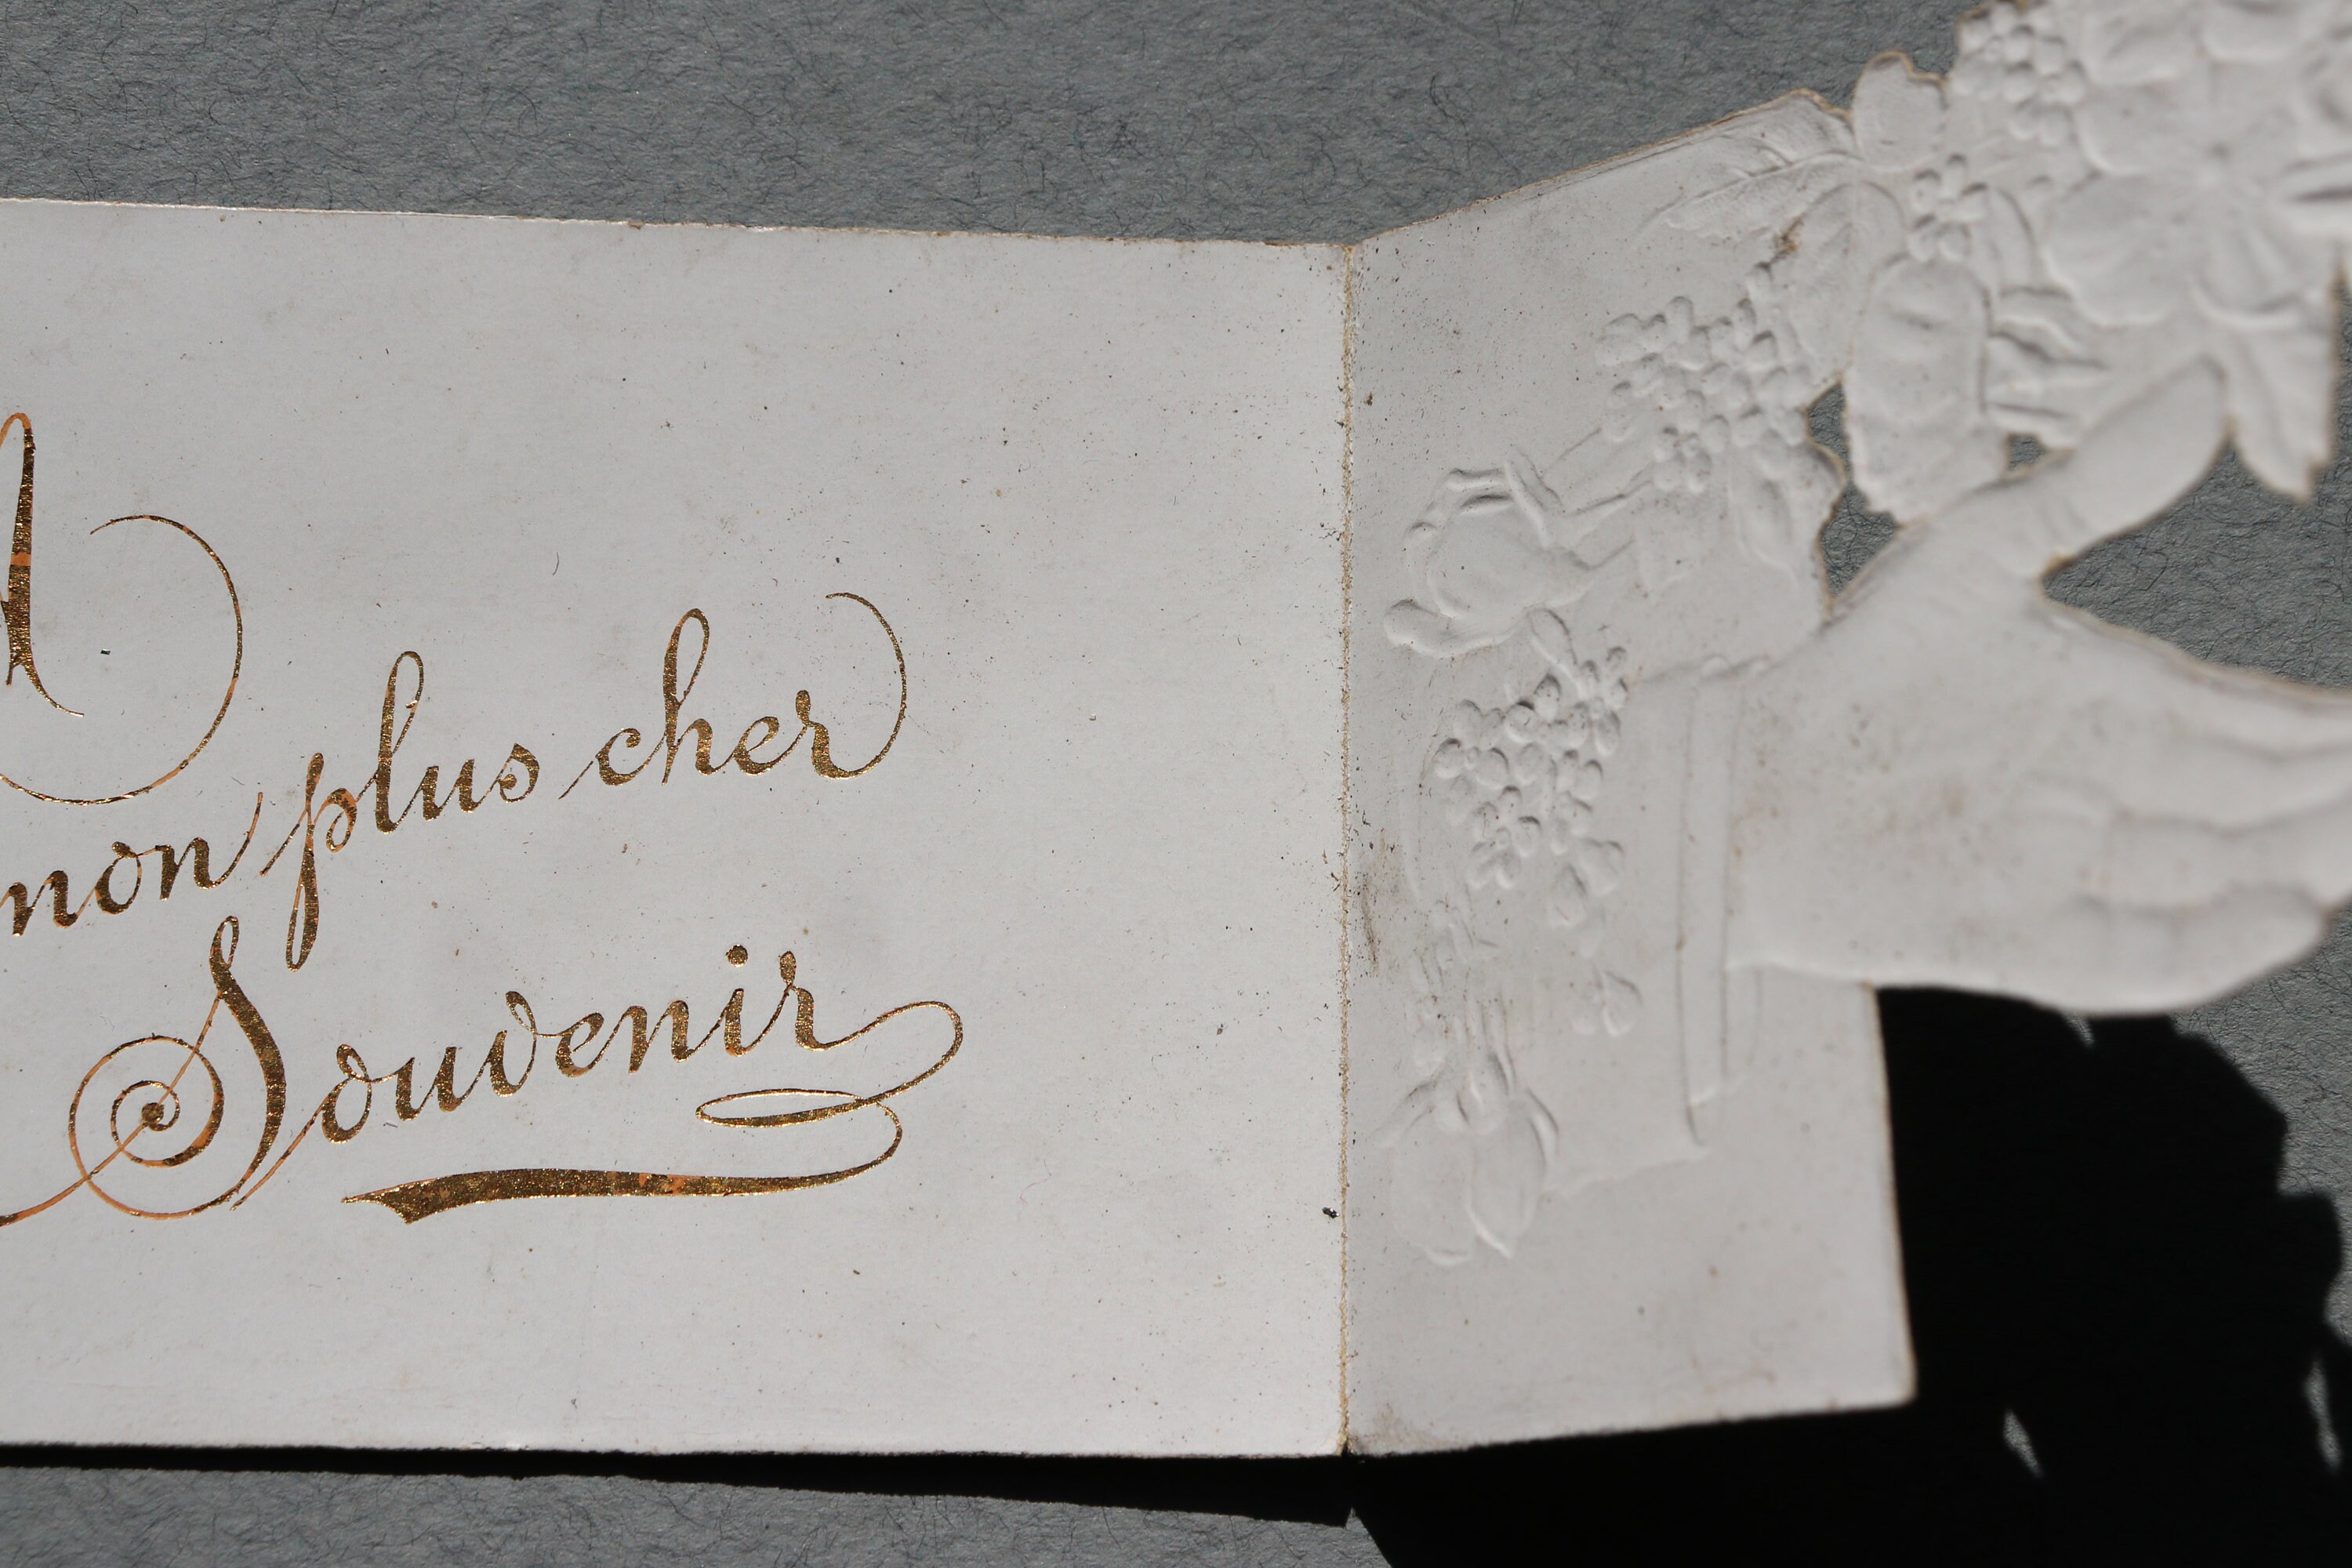 A
mon plus cher
Souvenir